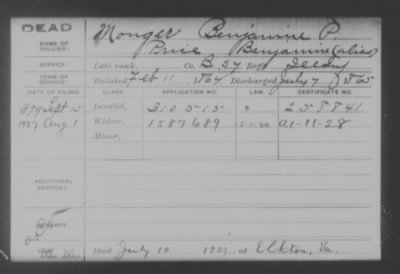 DEAD
NAME OF SOLDIER: Monger Benjamine P.
Price Benjamine (alias)
SERVICE: Late rank, Co. B 54 Reg't
TERM OF SERVICE: Enlisted Feb 11 1864 Discharged July 7 1865
DATE OF FILING. CLASS. APPLICATION NO. LAW. CERTIFICATE NO.
Sept 15 Invalid, 310515 258841
1927 Aug 1 Widow, 1587689 A8-11-28
Minor,
ADDITIONAL SERVICES:
REMARKS:
Died July 10 1927 at Elkton, Va.